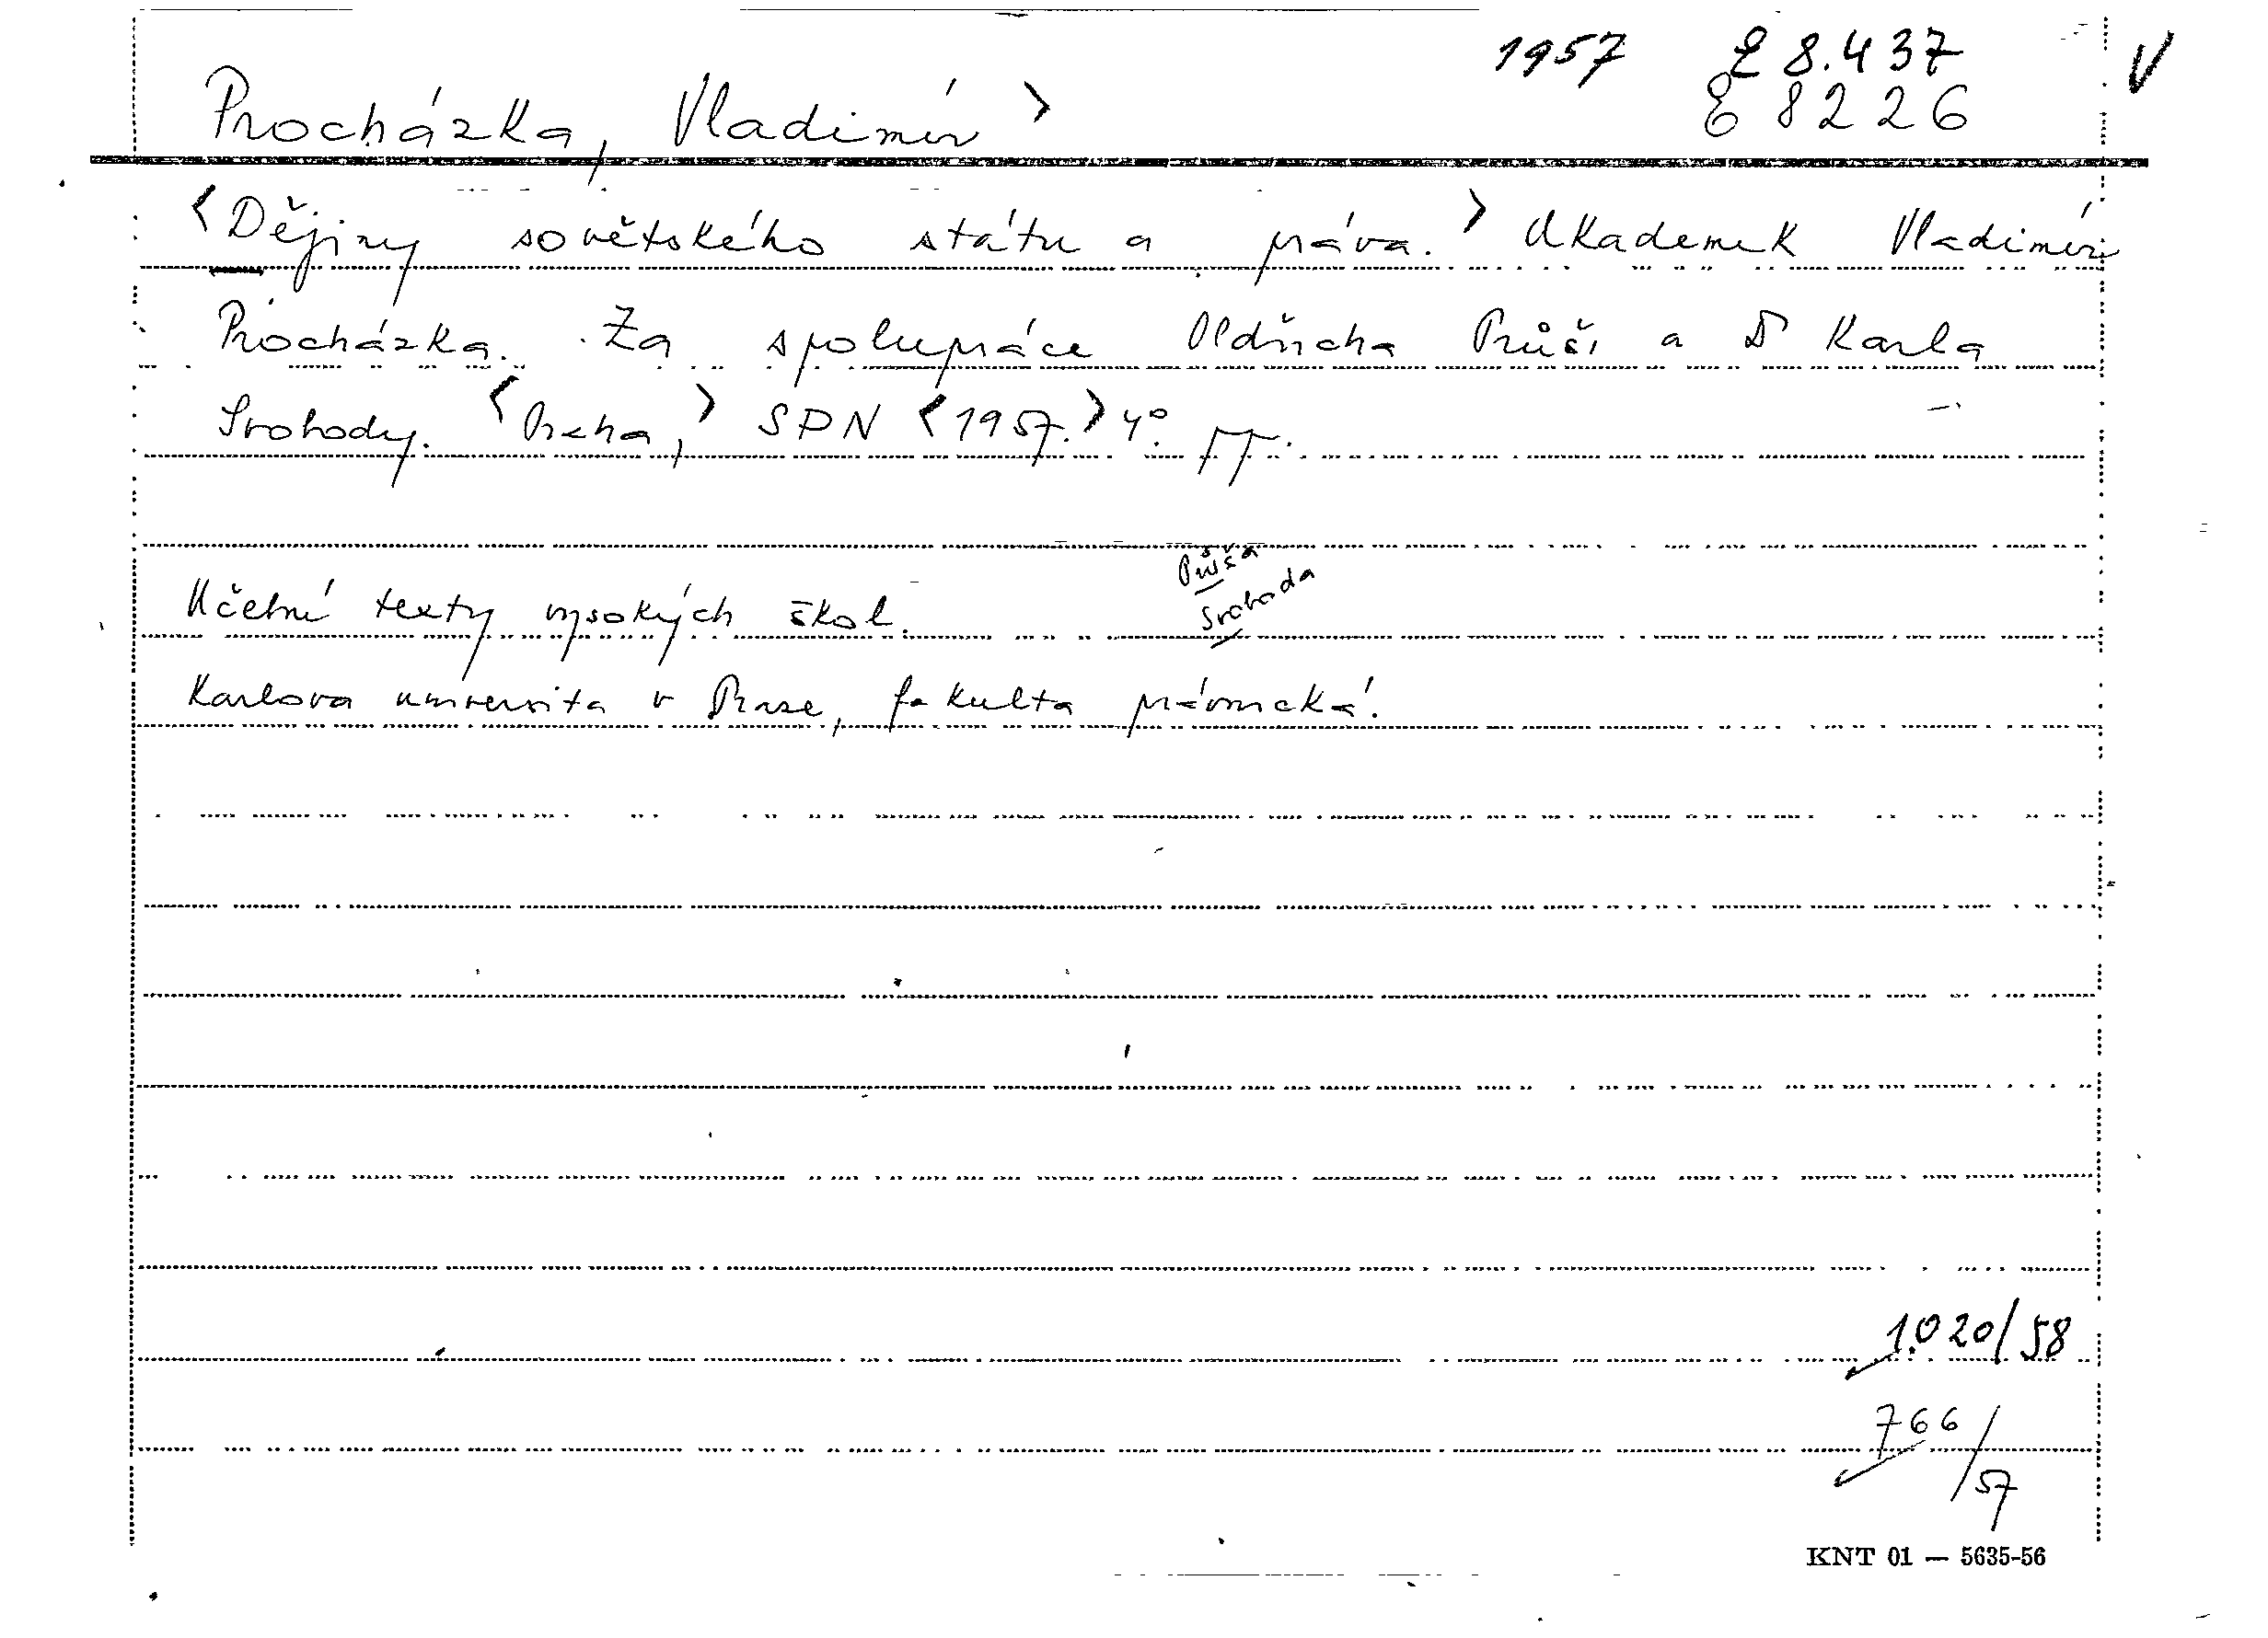 1957 E 8.437 V
E 8226
Procházka, Vladimír >
<Dějiny sovětského státu a práva.> Akademik Vladimír
Procházka. Za spolupráce Oldřicha Průši a Dr Karla
Svobody. <Praha,> SPN <1957.> 4°.
Průša
Svoboda
Učební texty vysokých škol.
Karlova universita v Praze, fakulta právnická.
1.020/58
766/57
KNT 01 — 5635-56